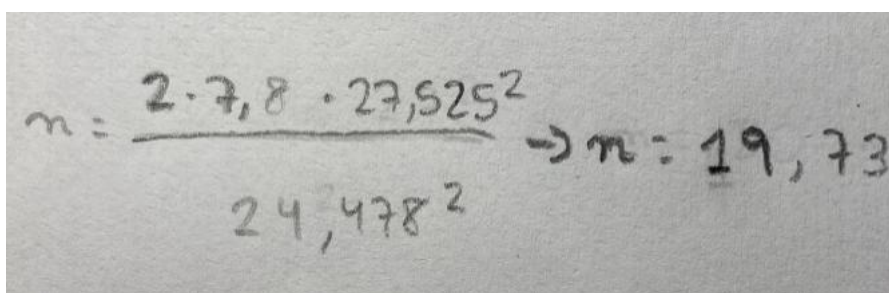 n = 2 · 7,8 · 27,525² / 24,478² → n = 19,73